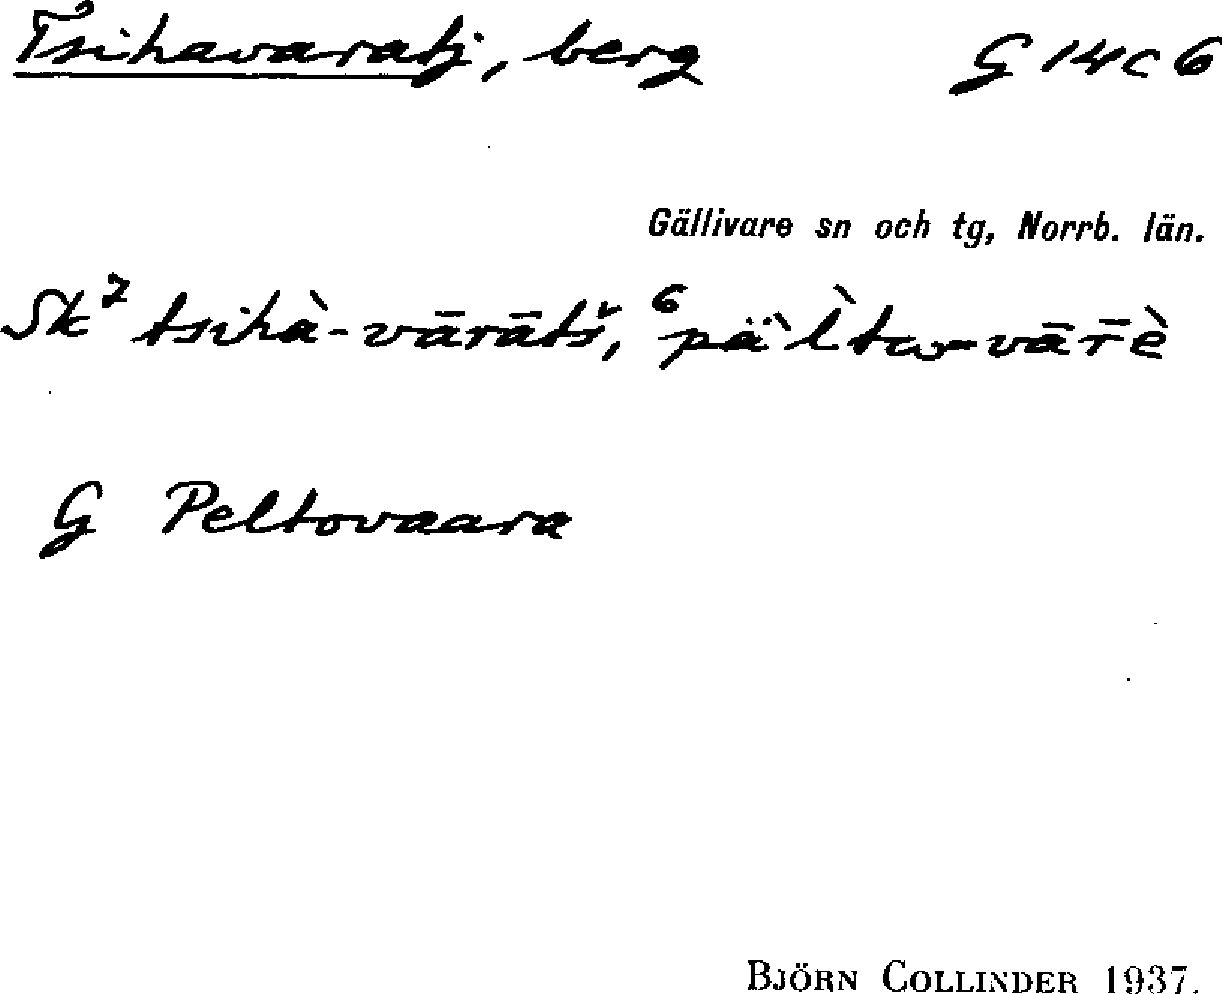 Tsihavaratj, berg G 14 c 6
Gällivare sn och tg, Norrb. län.
Sk⁷ tsihà-vārātš, ⁶pä̀ltω-vār̄è
G Peltovaara
BJÖRN COLLINDER 1937.